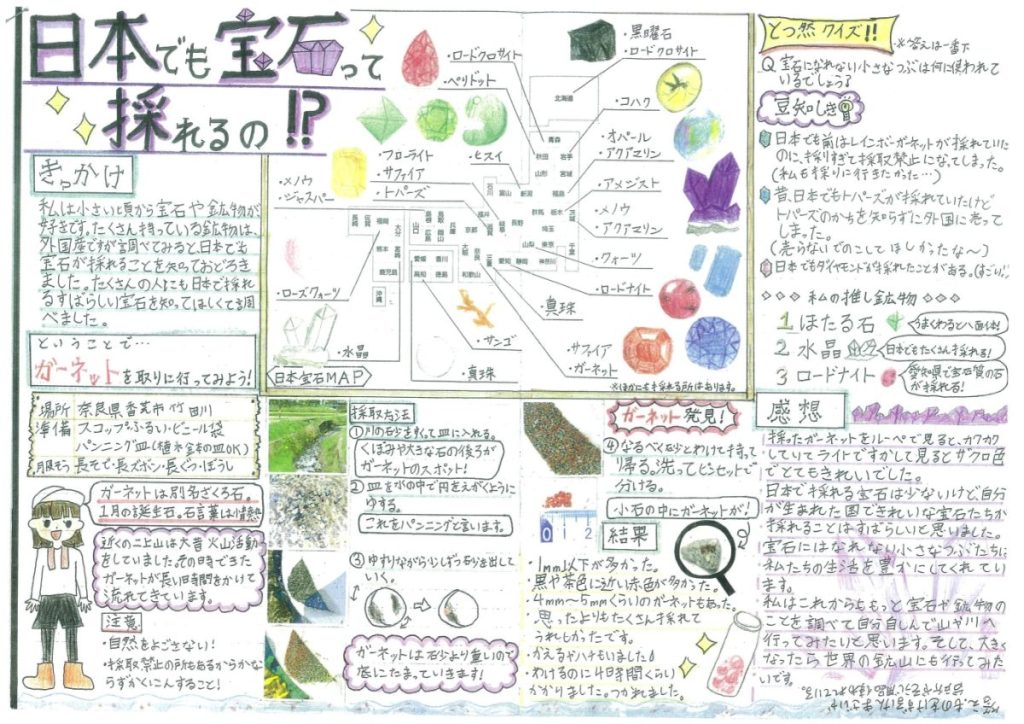 日本でも宝石って
採れるの!?
きっかけ
私は小さい頃から宝石や鉱物が
好きです。たくさん持っている鉱物は、
外国産ですが調べてみると日本でも
宝石が採れることを知っておどろき
ました。たくさんの人にも日本で採れ
るすばらしい宝石を知ってほしくて調
べました。
ということで…
ガーネットを取りに行ってみよう!
・ロードクロサイト
・ペリドット
・黒曜石
・ロードクロサイト
・コハク
・オパール
・アクアマリン
・アメジスト
・メノウ
・アクアマリン
・クォーツ
・ロードナイト
・真珠
・サファイア
・ガーネット
・フローライト
・サファイア
・トパーズ
・ヒスイ
・メノウ
・ジャスパー
・ローズクォーツ
・水晶
・サンゴ
・真珠
北海道
青森
秋田 岩手
山形 宮城
石川 富山 新潟 福島
群馬 栃木 茨城
福井 岐阜 長野 埼玉
山梨 東京 千葉
愛知 静岡 神奈川
長崎 佐賀 福岡
熊本 大分 宮崎
鹿児島
沖縄
山口 島根 鳥取 広島 岡山 兵庫 京都
大阪 奈良 三重
和歌山
愛媛 香川
高知 徳島
日本宝石MAP
※ほかにも採れる所はあります。
とつ然クイズ!!
※答えは一番下
Q 宝石になれない小さなつぶは何に使われて
いるでしょう?
豆知しき
日本でも前はレインボーガーネットが採れていた
のに、採りすぎて採取禁止になってしまった。
(私も採りに行きたかった…)
昔、日本でもトパーズが採れていたけど
トパーズのかちを知らずに外国に売って
しまった。
(売らないでのこしてほしかったな〜)
日本でもダイヤモンドが採れたことがある。(すごい!)
私の推し鉱物
1 ほたる石
うまくわると八面体!
2 水晶
日本でもたくさん採れる!
3 ロードナイト
愛知県で宝石質の石
が採れる!
場所 奈良県香芝市竹田川
準備 スコップ・ふるい・ビニール袋
パンニング皿(植木金本の皿OK)
服そう 長そで・長ズボン・長ぐつ・ぼうし
ガーネットは別名ざくろ石。
1月の誕生石。石言葉は情熱
近くの二上山は大昔火山活動
をしていました。その時できた
ガーネットが長い時間をかけて
流れてきています。
注意
・自然をよごさない!
・採取禁止の所もあるからかな
らずかくにんすること!
採取方法
①川の砂をすくって皿に入れる。
くぼみや大きな石の後ろが
ガーネットのスポット!
②皿を水の中で円をえがくように
ゆする。
これをパンニングと言います。
③ゆすりながら少しずつ石を出して
いく。
ガーネットは石砂より重いので
底にたまっていきます!
ガーネット発見!
④なるべく砂とわけて持って
帰る。洗ってピンセットで
分ける。
小石の中にガーネットが!
0 1 2
結果
・1mm以下が多かった。
・黒や茶色に近い赤色が多かった。
・4mm〜5mmくらいのガーネットもあった。
・思ったよりもたくさん採れて
うれしかったです。
・かえるやハチもいました
・わけるのに4日時間くらい
かかりました。つかれました。
感想
採ったガーネットをルーペで見ると、カクカク
していてライトですかして見るとザクロ色
でとてもきれいでした。
日本で採れる宝石は少ないけど自分
が生まれた国できれいな宝石たちが
採れることはすばらしいと思いました。
宝石にはなれない小さなつぶたちに
私たちの生活を豊かにしてくれてい
ます。
私はこれからももっと宝石や鉱物の
ことを調べて自分自しんで山や川へ
行ってみたいと思います。そして、大きく
なったら世界の鉱山にも行ってみた
いです。